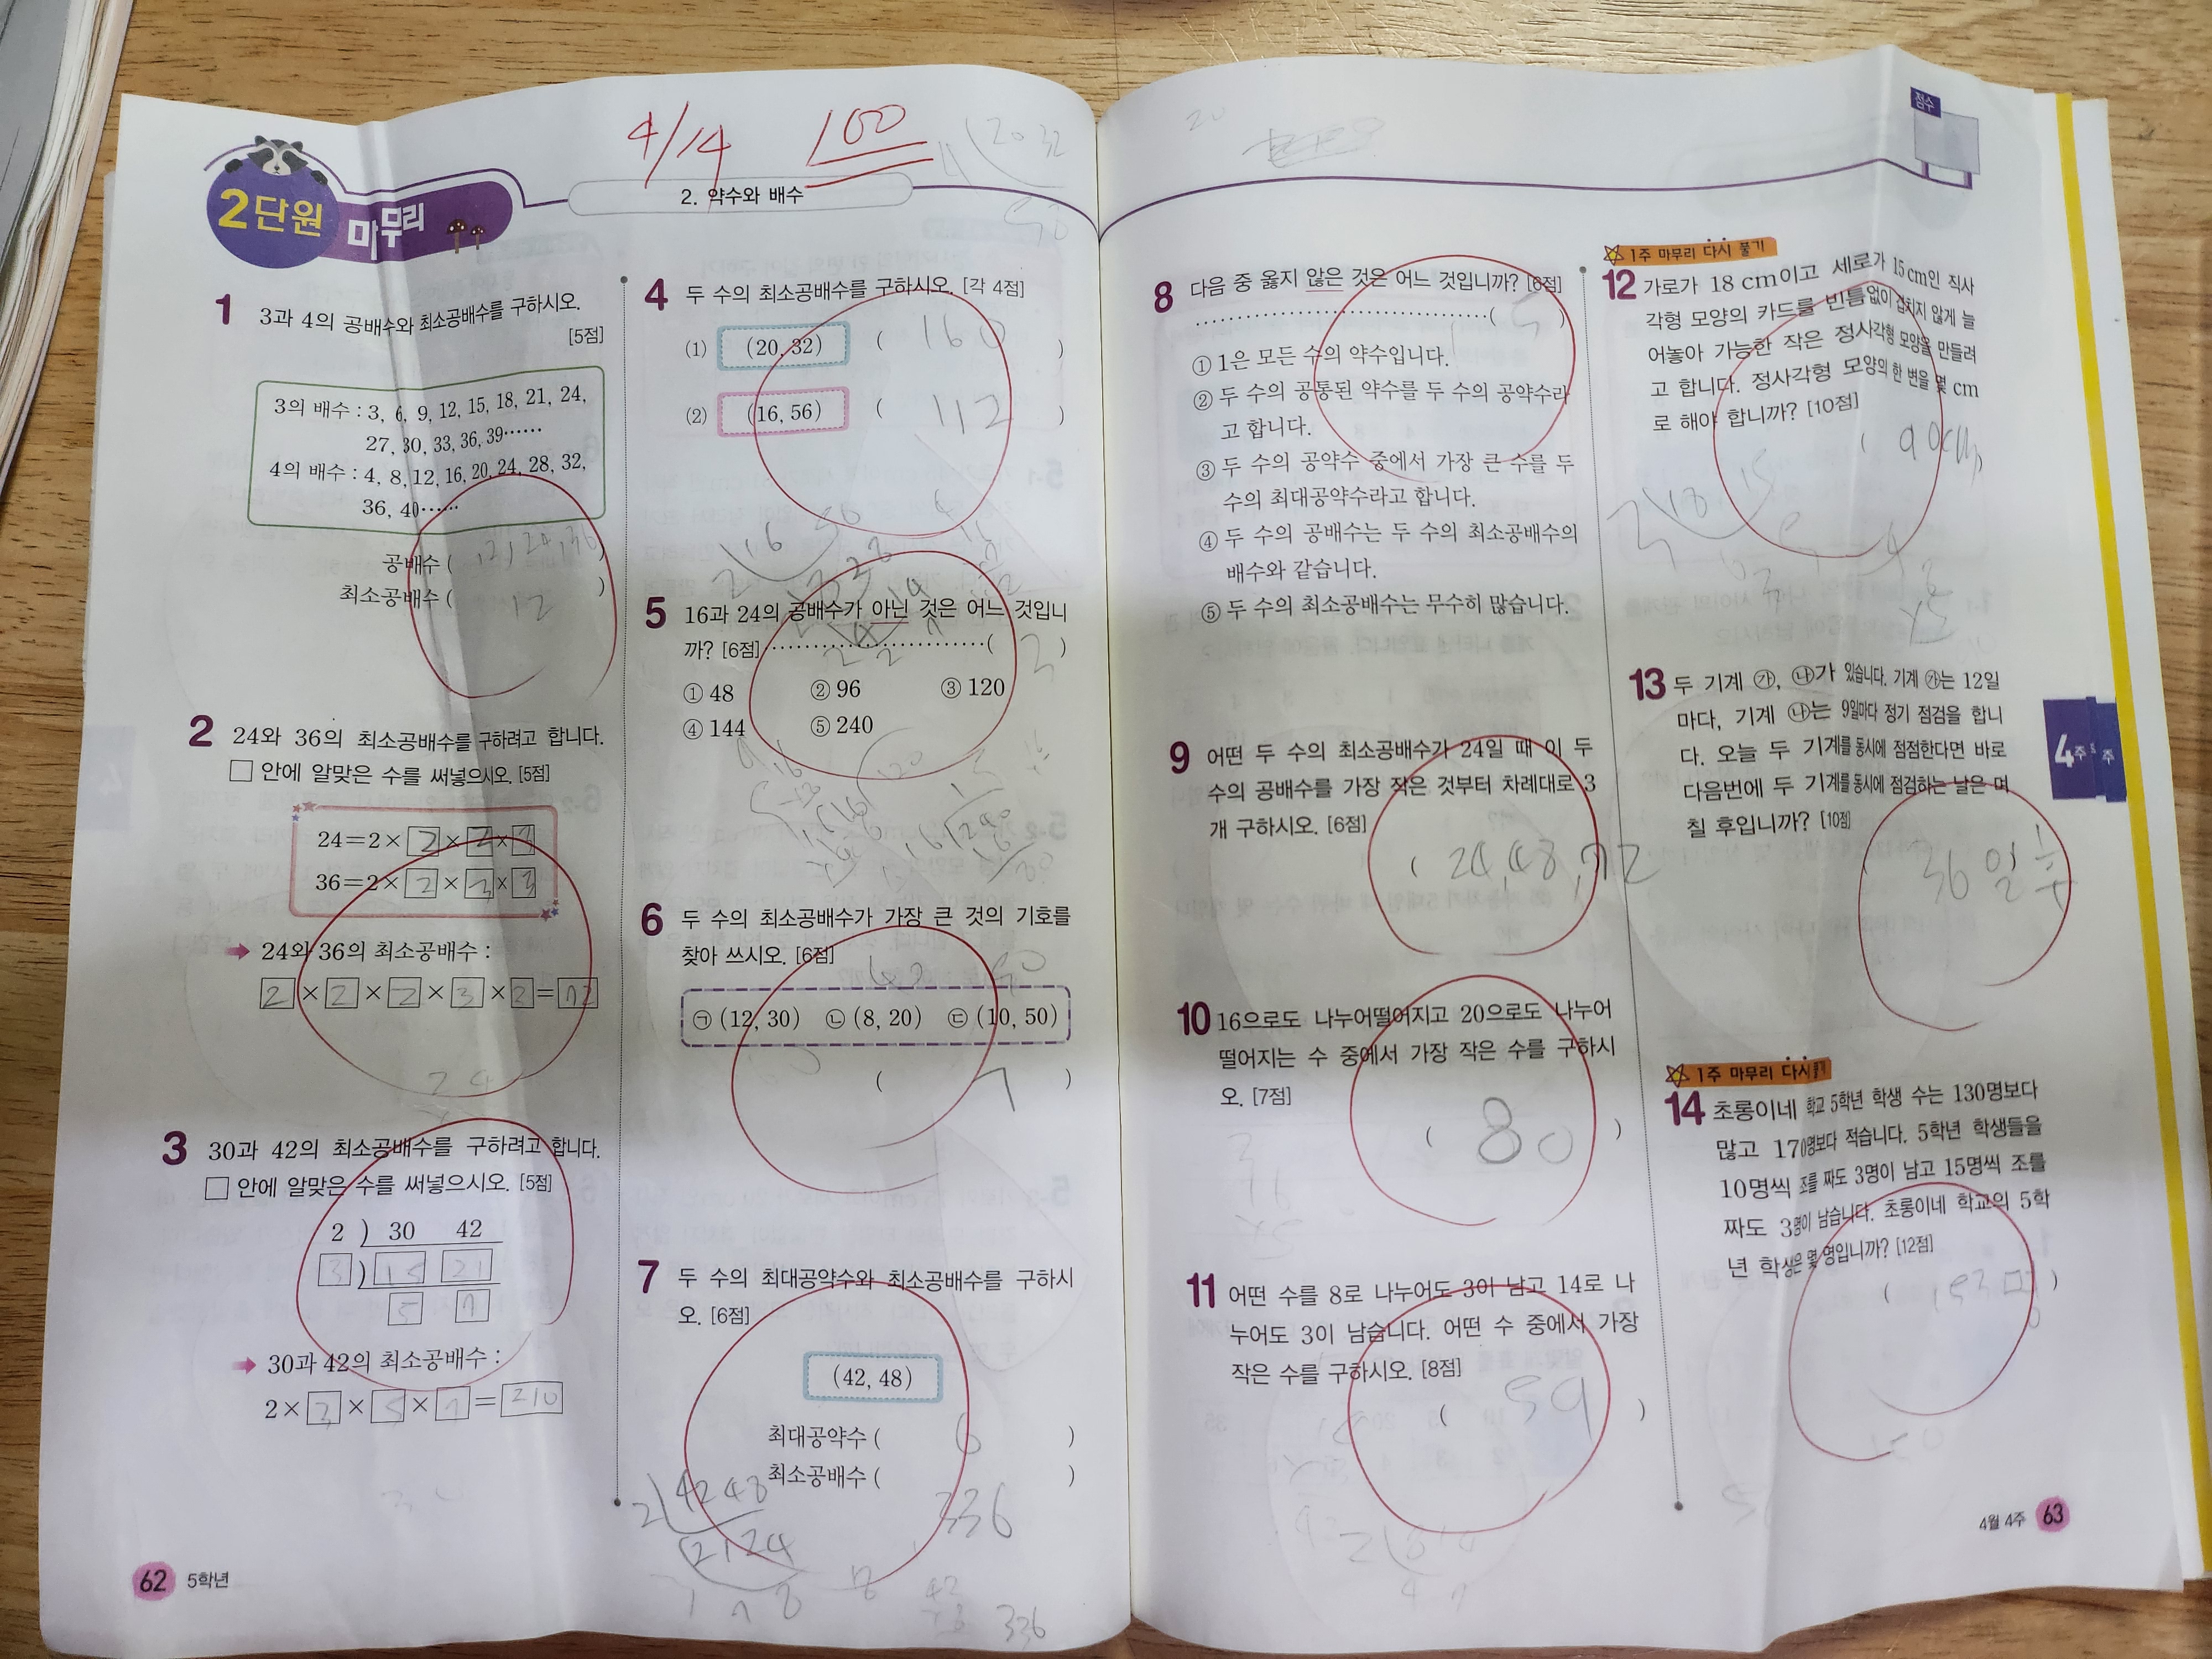 4/14 100
2단원 마무리
2. 약수와 배수
1 3과 4의 공배수와 최소공배수를 구하시오.
[5점]
3의 배수 : 3, 6, 9, 12, 15, 18, 21, 24,
27, 30, 33, 36, 39……
4의 배수 : 4, 8, 12, 16, 20, 24, 28, 32,
36, 40……
공배수 ( 12, 24, 36 )
최소공배수 ( 12 )
2 24와 36의 최소공배수를 구하려고 합니다.
□ 안에 알맞은 수를 써넣으시오. [5점]
24=2×2×2×3
36=2×2×3×3
➡ 24와 36의 최소공배수 :
2×2×2×3×3=72
3 30과 42의 최소공배수를 구하려고 합니다.
□ 안에 알맞은 수를 써넣으시오. [5점]
2 ) 30 42
3 ) 15 21
5 7
➡ 30과 42의 최소공배수 :
2×3×5×7=210
62 5학년
4 두 수의 최소공배수를 구하시오. [각 4점]
(1) (20, 32) ( 160 )
(2) (16, 56) ( 112 )
5 16과 24의 공배수가 아닌 것은 어느 것입니
까? [6점] ……………………( 3 )
① 48 ② 96 ③ 120
④ 144 ⑤ 240
6 두 수의 최소공배수가 가장 큰 것의 기호를
찾아 쓰시오. [6점]
㉠ (12, 30) ㉡ (8, 20) ㉢ (10, 50)
( ㄱ )
7 두 수의 최대공약수와 최소공배수를 구하시
오. [6점]
(42, 48)
최대공약수 ( 6 )
최소공배수 ( )
336
2 42 48
21 24
7 8
336
점수
8 다음 중 옳지 않은 것은 어느 것입니까? [6점]
……………………………( 5 )
① 1은 모든 수의 약수입니다.
② 두 수의 공통된 약수를 두 수의 공약수라
고 합니다.
③ 두 수의 공약수 중에서 가장 큰 수를 두
수의 최대공약수라고 합니다.
④ 두 수의 공배수는 두 수의 최소공배수의
배수와 같습니다.
⑤ 두 수의 최소공배수는 무수히 많습니다.
9 어떤 두 수의 최소공배수가 24일 때 이 두
수의 공배수를 가장 작은 것부터 차례대로 3
개 구하시오. [6점]
( 24, 48, 72
10 16으로도 나누어떨어지고 20으로도 나누어
떨어지는 수 중에서 가장 작은 수를 구하시
오. [7점]
( 80 )
11 어떤 수를 8로 나누어도 3이 남고 14로 나
누어도 3이 남습니다. 어떤 수 중에서 가장
작은 수를 구하시오. [8점]
( 59 )
1주 마무리 다시 풀기
12 가로가 18 cm이고 세로가 15 cm인 직사
각형 모양의 카드를 빈틈없이 겹치지 않게 늘
어놓아 가능한 작은 정사각형 모양을 만들려
고 합니다. 정사각형 모양의 한 변을 몇 cm
로 해야 합니까? [10점]
( 90cm )
13 두 기계 ㉮, ㉯가 있습니다. 기계 ㉮는 12일
마다, 기계 ㉯는 9일마다 정기 점검을 합니
다. 오늘 두 기계를 동시에 점검한다면 바로
다음번에 두 기계를 동시에 점검하는 날은 며
칠 후입니까? [10점]
36일 후
1주 마무리 다시 풀기
14 초롱이네 학교 5학년 학생 수는 130명보다
많고 170명보다 적습니다. 5학년 학생들을
10명씩 조를 짜도 3명이 남고 15명씩 조를
짜도 3명이 남습니다. 초롱이네 학교의 5학
년 학생은 몇 명입니까? [12점]
( 153명 )
4주
4월 4주 63